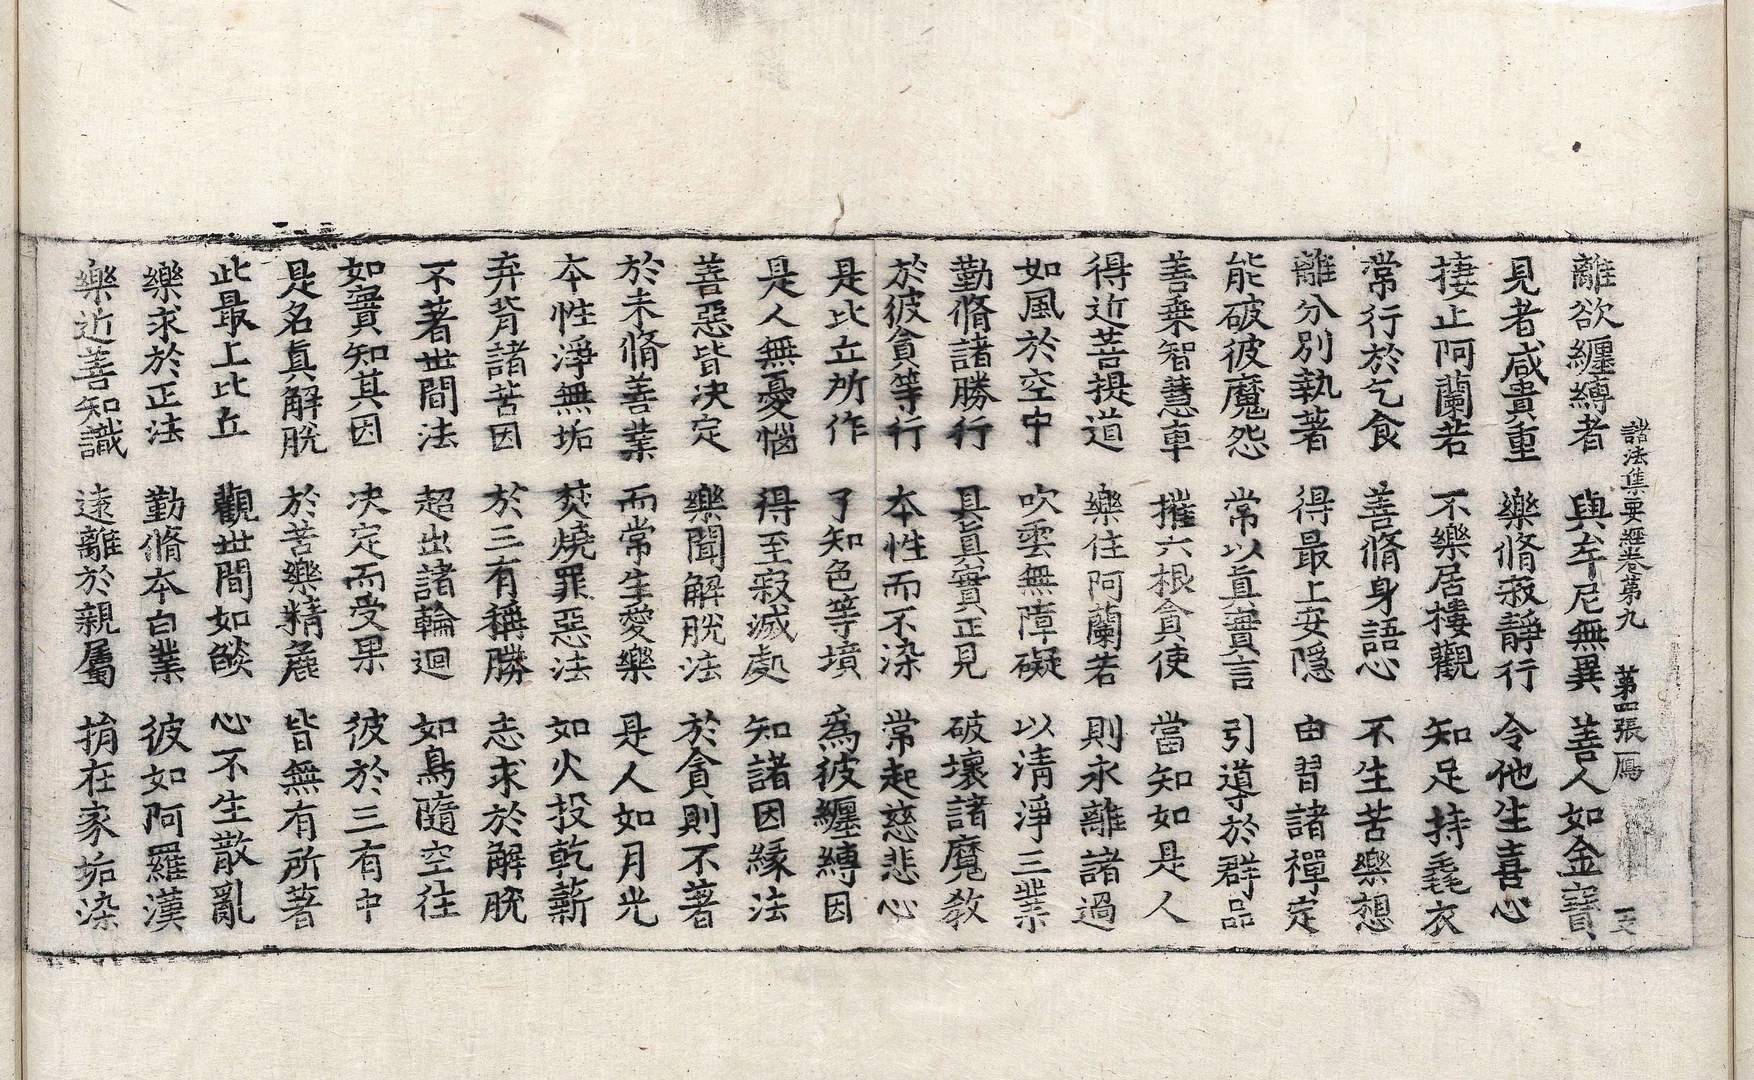 諸法集要經卷第九　第四張　鳳
離欲纏縛者　與牟尼無異　善人如金寶
見者咸貴重　樂脩寂靜行　令他生喜心
捿止阿蘭若　不樂居樓觀　知足持毳衣
常行於乞食　善脩身語心　不生苦樂想
離分別執著　得最上安隱　由習諸禪定
能破彼魔怨　常以真實言　引導於群品
善乘智慧車　摧六根貪使　當知如是人
得近菩提道　樂住阿蘭若　則永離諸過
如風於空中　吹雲無障礙　以清淨三業
勤脩諸勝行　具真實正見　破壞諸魔教
於彼貪等行　本性而不染　常起慈悲心
是比丘所作　了知色等境　為彼纏縛因
是人無憂惱　得至寂滅處　知諸因緣法
善惡皆決定　樂聞解脫法　於貪則不著
於未脩善業　而常生愛樂　是人如月光
本性淨無垢　焚燒罪惡法　如火投乾薪
弃背諸苦因　於三有稱勝　志求於解脫
不著世間法　超出諸輪迴　如鳥隨空往
如實知其因　決定而受果　彼於三有中
是名真解脫　於苦樂精麁　皆無有所著
此最上比丘　觀世間如燄　心不生散亂
樂求於正法　勤脩本白業　彼如阿羅漢
樂近善知識　遠離於親屬　捐在家垢染